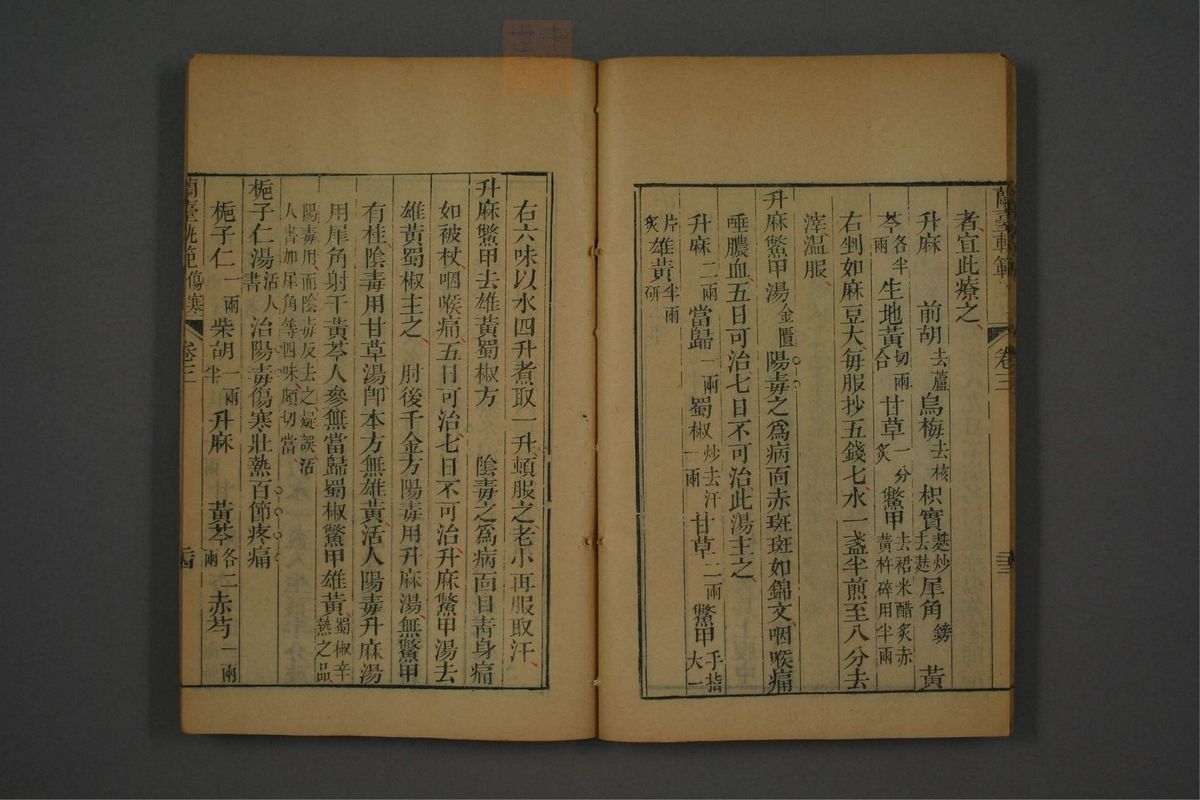 蘭臺軌範 卷三
者宜此療之
升麻 前胡去蘆 烏梅去核 枳實麩炒去麩 犀角鎊 黃
芩各半兩 生地黃切兩合 甘草一分炙 鱉甲去裙米醋炙赤黃杵碎用半兩
右剉如麻豆大每服抄五錢七水一盞半煎至八分去
滓溫服
升麻鱉甲湯金匱 陽毒之爲病面赤斑斑如錦文咽喉痛
唾膿血五日可治七日不可治此湯主之
升麻二兩 當歸一兩 蜀椒炒去汗一兩 甘草二兩 鱉甲手指大一
片炙 雄黃半兩研
右六味以水四升煮取一升頓服之老小再服取汗
升麻鱉甲去雄黃蜀椒方 陰毒之爲病面目青身痛
如被杖咽喉痛五日可治七日不可治升麻鱉甲湯去
雄黃蜀椒主之 肘後千金方陽毒用升麻湯無鱉甲
有桂陰毒用甘草湯卽本方無雄黃活人陽毒升麻湯
用犀角射干黃芩人參無當歸蜀椒鱉甲雄黃蜀椒辛熱之品
陽毒用而陰毒反去之疑誤活
人書加犀角等四味頗切當
梔子仁湯活人書 治陽毒傷寒壯熱百節疼痛
梔子仁一兩 柴胡一兩半 升麻 黃芩各二兩 赤芍一兩
蘭臺軌範 傷寒 卷三